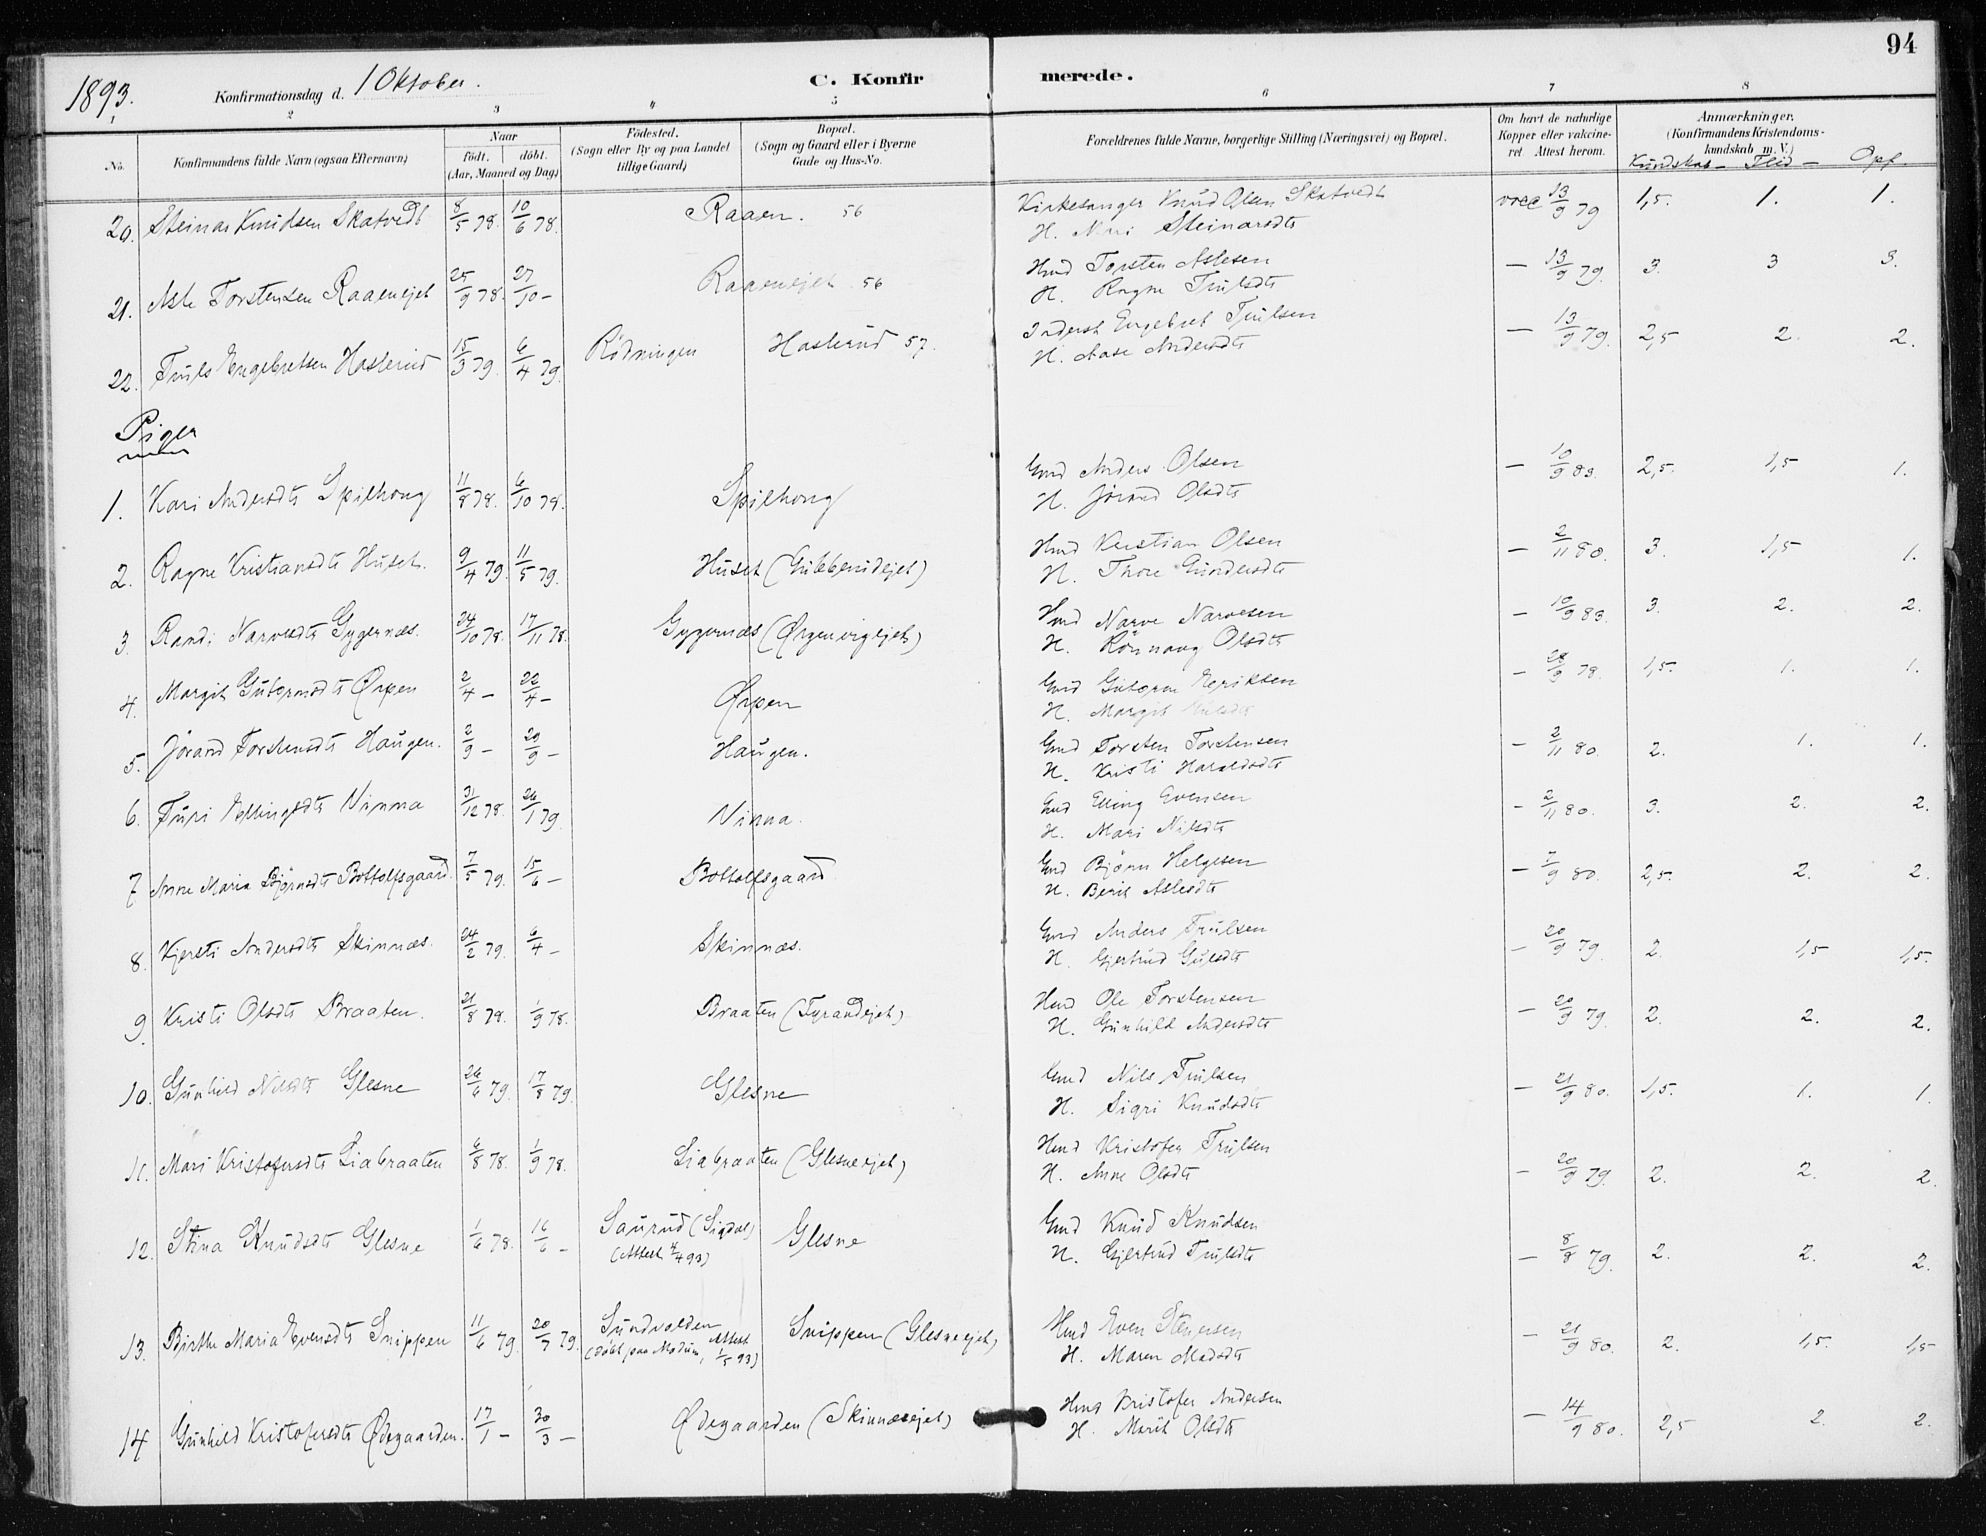 94
1893. Konfirmationsdag d. 1 Oktober. C. Konfirmerede.
1 2 3 4 5 6 7 8
No. Konfirmandens fulde Navn (ogsaa Efternavn) Naar født. døbt. (Aar, Maaned og Dag) Fødested. (Sogn eller By og paa Landet tillige Gaard) Bopæl. (Sogn og Gaard eller i Byerne Gade og Hus-No. Forældrenes fulde Navne, borgerlige Stilling (Næringsvei) og Bopæl. Om havt de naturlige Kopper eller vakcineret. Attest herom. Anmærkninger. (Konfirmandens Kristendomskundskab m. V.) Kundskab – Flid – Opf.
20. Steinar Knudsen Skatvedt 8/5 78. 10/6 78. Raaen. 56 Kirkesanger Knud Olsen Skatvedt vacc 13/9 79 1,5. 1. 1.
H. Mari Steinarsdtr
21. Asle Torstensen Raaenejet 25/9 78. 27/10 – Raaenejet 56 Hmd Torsten Aslesen – 13/9 79. 3. 3 3.
H. Ragne Trulsdtr
22. Truls Engebretsen Haslerud 15/3 79. 6/4 79. Rødningen Haslerud 57. Inderst Engebret Trulsen – 13/9 79. 2,5 2. 2.
H. Aase Andersdtr
Piger
1. Kari Andersdtr Spilhoug 11/8 78. 6/10 78. Spilhoug Gmd Anders Olsen – 10/9 83. 2,5. 1,5 1.
H. Jørand Olsdtr
2. Ragne Kristiansdtr Huset. 9/4 79. 11/5 79. Huset (Gubberudejet) Hmd Kristian Olsen – 2/11 80. 3. 1,5 1.
H. Thore Gundersdtr
3. Randi Narvesdtr Gygernæs. 24/10 78. 17/11 78. Gygernæs (Ørgenvigejet) Hmd Narve Narvesen – 10/9 83. 3. 2. 2.
H. Rønnaug Olsdtr
4. Margit Gutormsdtr Ørpen 2/4 – 22/4 – Ørpen Gmd Gutorm Eriksen – 28/9 78. 1,5. 1. 1.
H. Margit Nilsdtr
5. Jørand Torstensdtr Haugen. 2/9 – 29/9 – Haugen. Gmd Torsten Torstensen – 2/11 80. 2. 1. 1.
H. Kristi Haraldsdtr
6. Turi Ellingsdtr Vinna 31/12 78. 26/1 79. Vinna. Gmd Elling Evensen – 2/11 80. 3. 2. 2.
H. Mari Nilsdtr
7 Anne Maria Bjørnsdtr Bottolfsgaard. 7/5 79. 15/6 – Bottolfsgaard Gmd Bjørn Helgesen – 7/9 80. 2,5. 2. 2.
H. Berit Aslesdtr
8. Kjersti Andersdtr Skinnæs. 24/2 79. 6/4 – Skinnæs. Gmd Anders Trulsen – 20/9 79. 2. 1,5 1,5.
H. Gjertrud Gulsdtr
9. Kristi Olsdtr Braaten. 21/8 78. 1/9 78. Braaten (Tyrandejet) Hmd Ole Torstensen – 20/9 79. 2. 2. 2.
H. Gunhild Andersdtr
10. Gunhild Nilsdtr Glesne 26/6 79. 17/8 79. Glesne Gmd Nils Trulsen – 21/9 80. 1,5. 1. 1.
H. Sigri Knudsdtr
11. Mari Kristofersdtr Liabraaten 6/8 78. 1/9 78. Liabraaten (Glesneejet) Hmd Kristofer Trulsen – 20/9 79. 2. 2. 2.
H. Anne Olsdtr
12. Stina Knudsdtr Glesne 1/6 78. 16/6 – Saurud (Sigdal) Glesne Gmd Knud Knudsen – 8/8 79. 2. 2. 2.
(Attest 4/4 93) H. Gjertrud Trulsdtr
13. Birthe Maria Evensdtr Snippen 11/6 79. 20/7 79. Sundvolden Snippen (Glesneejet) Hmd Even Stenersen – 21/9 80. 2. 1,5. 1,5
(døbt paa Modum, Attest 1/5 93) H. Maren Madsdtr
14 Gunhild Kristofersdtr Ødegaarden. 17/1 – 30/3 – Ødegaarden (Skinnæsejet) Hmd Kristofer Andersen – 14/9 80. 2,5 2. 2.
H. Marit Olsdtr